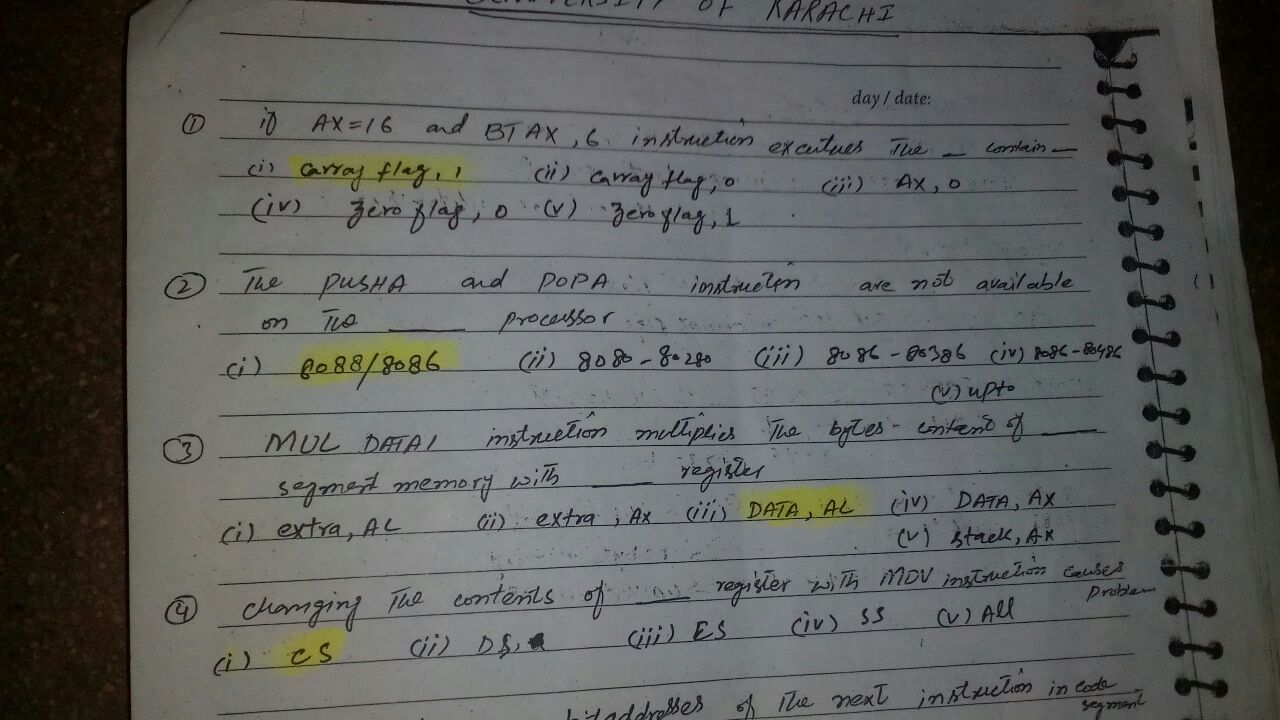 UNIVERSITY OF KARACHI
day / date:
① if AX=16 and BT AX, 6 instruction excutues The _ contain _
(i) carray flag, 1 (ii) carray flag, 0 (iii) AX, 0
(iv) Zero flag, 0 (v) Zero flag, 1
② The PUSHA and POPA instruction are not available
on The ____ processor
(i) 8088/8086 (ii) 8080-80280 (iii) 8086-80386 (iv) 8086-80486
(v) upto
③ MUL DATA1 instruction multiplies The bytes-content of ____
segment memory with ____ register
(i) extra, AL (ii) extra, AX (iii) DATA, AL (iv) DATA, AX
(v) stack, AX
④ changing The contents of ____ register with MOV instruction causes
Problem
(i) CS (ii) DS, (iii) ES (iv) SS (v) All
addresses of The next instruction in code
segment